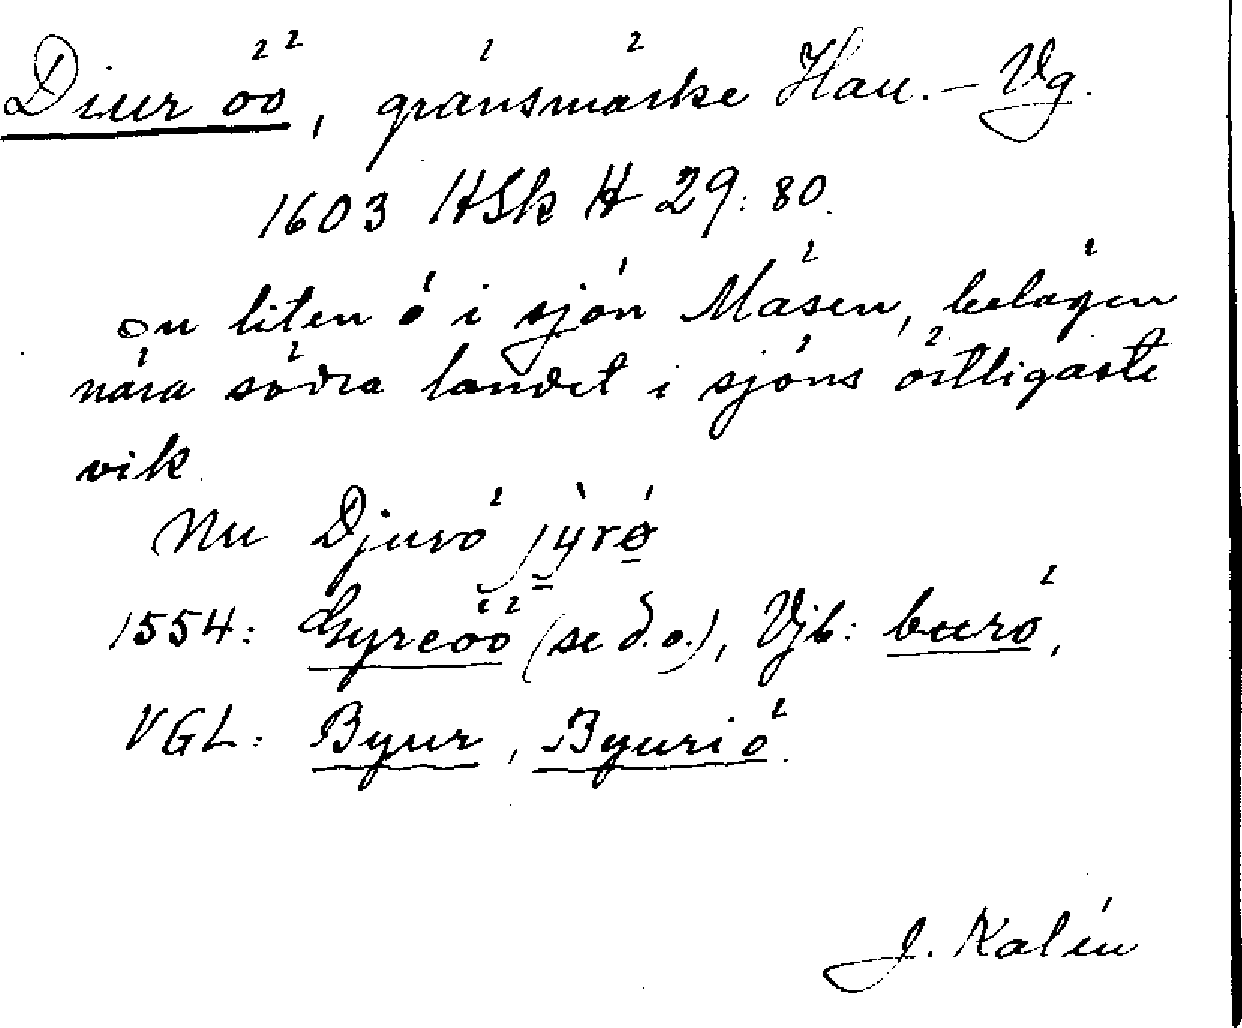 Diur öö, gränsmärke Hall.–Vg.
1603 HSk H 29:80.
en liten ö i sjön Mäsen, belägen
nära södra landet i sjöns östligaste
vik.
Nu Djurö jy̆rø
1554: Gyreöö (se d. o.), Vjb: burö,
VGL: Byur, Byuriö.
J. Kalén